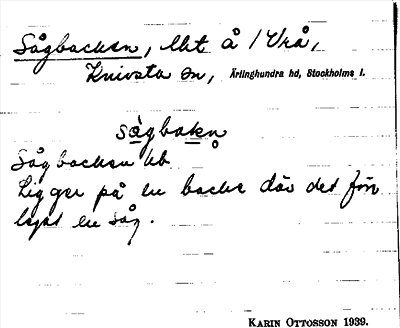 Sågbacken, lht å / Vrå,
Knivsta sn, Ärlinghundra hd, Stockholms l.
sågbakn
Sågbacken hb
Ligger på en backe där det förr
legat en såg.
KARIN OTTOSSON 1939.